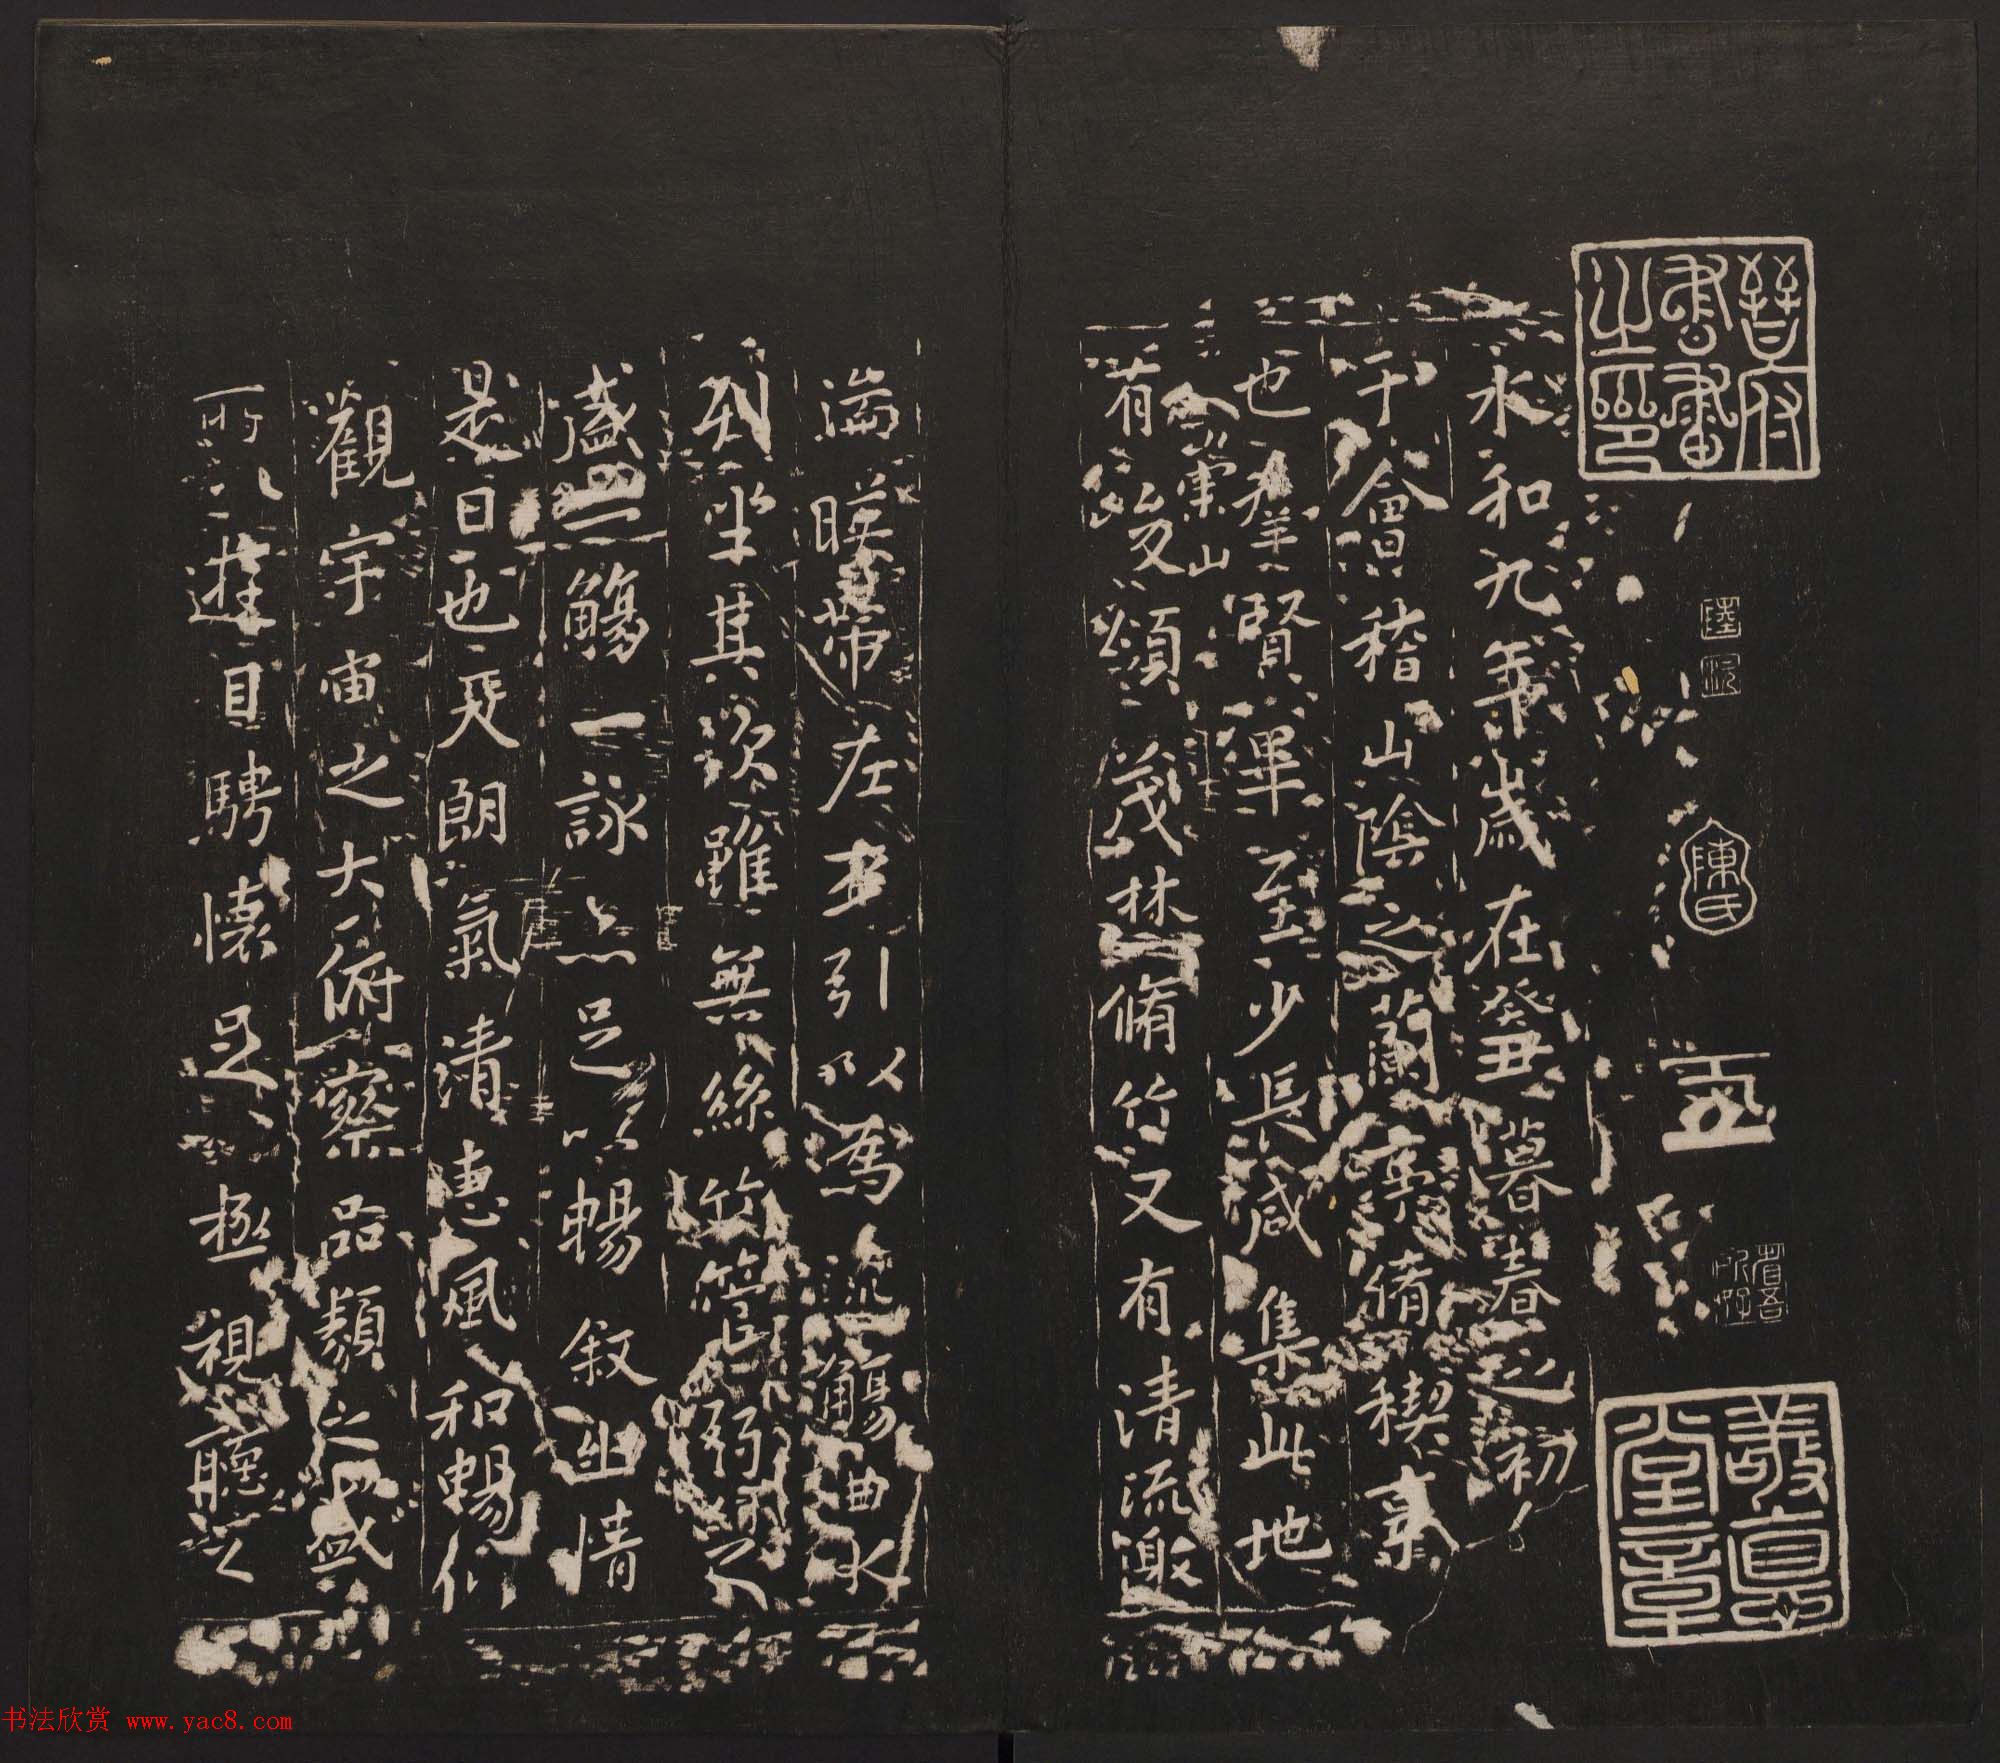 晉府書畫之印
陳氏
敬悳堂章
永和九年歲在癸丑暮春之初
于會稽山陰之蘭亭脩禊事
也羣賢畢至少長咸集此地
崇山
有峻領茂林脩竹又有清流激
湍暎帶左右引以為流觴曲水
列坐其次雖無絲竹管弦之
盛一觴一詠亦足以暢敘幽情
是日也天朗氣清惠風和暢仰
觀宇宙之大俯察品類之盛
所以遊目騁懷足以極視聽之
书法欣赏 www.yac8.com